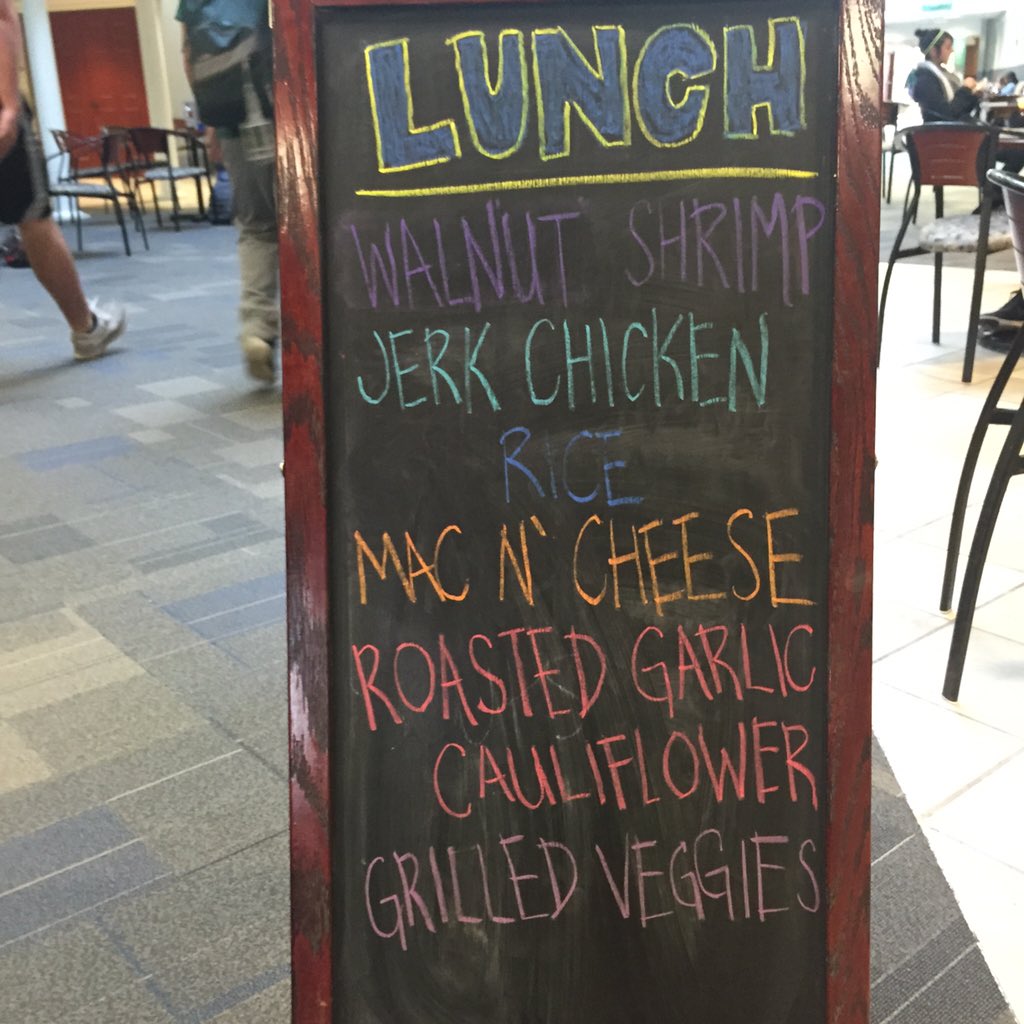 LUNCH
WALNUT SHRIMP
JERK CHICKEN
RICE
MAC N' CHEESE
ROASTED GARLIC
CAULIFLOWER
GRILLED VEGGIES